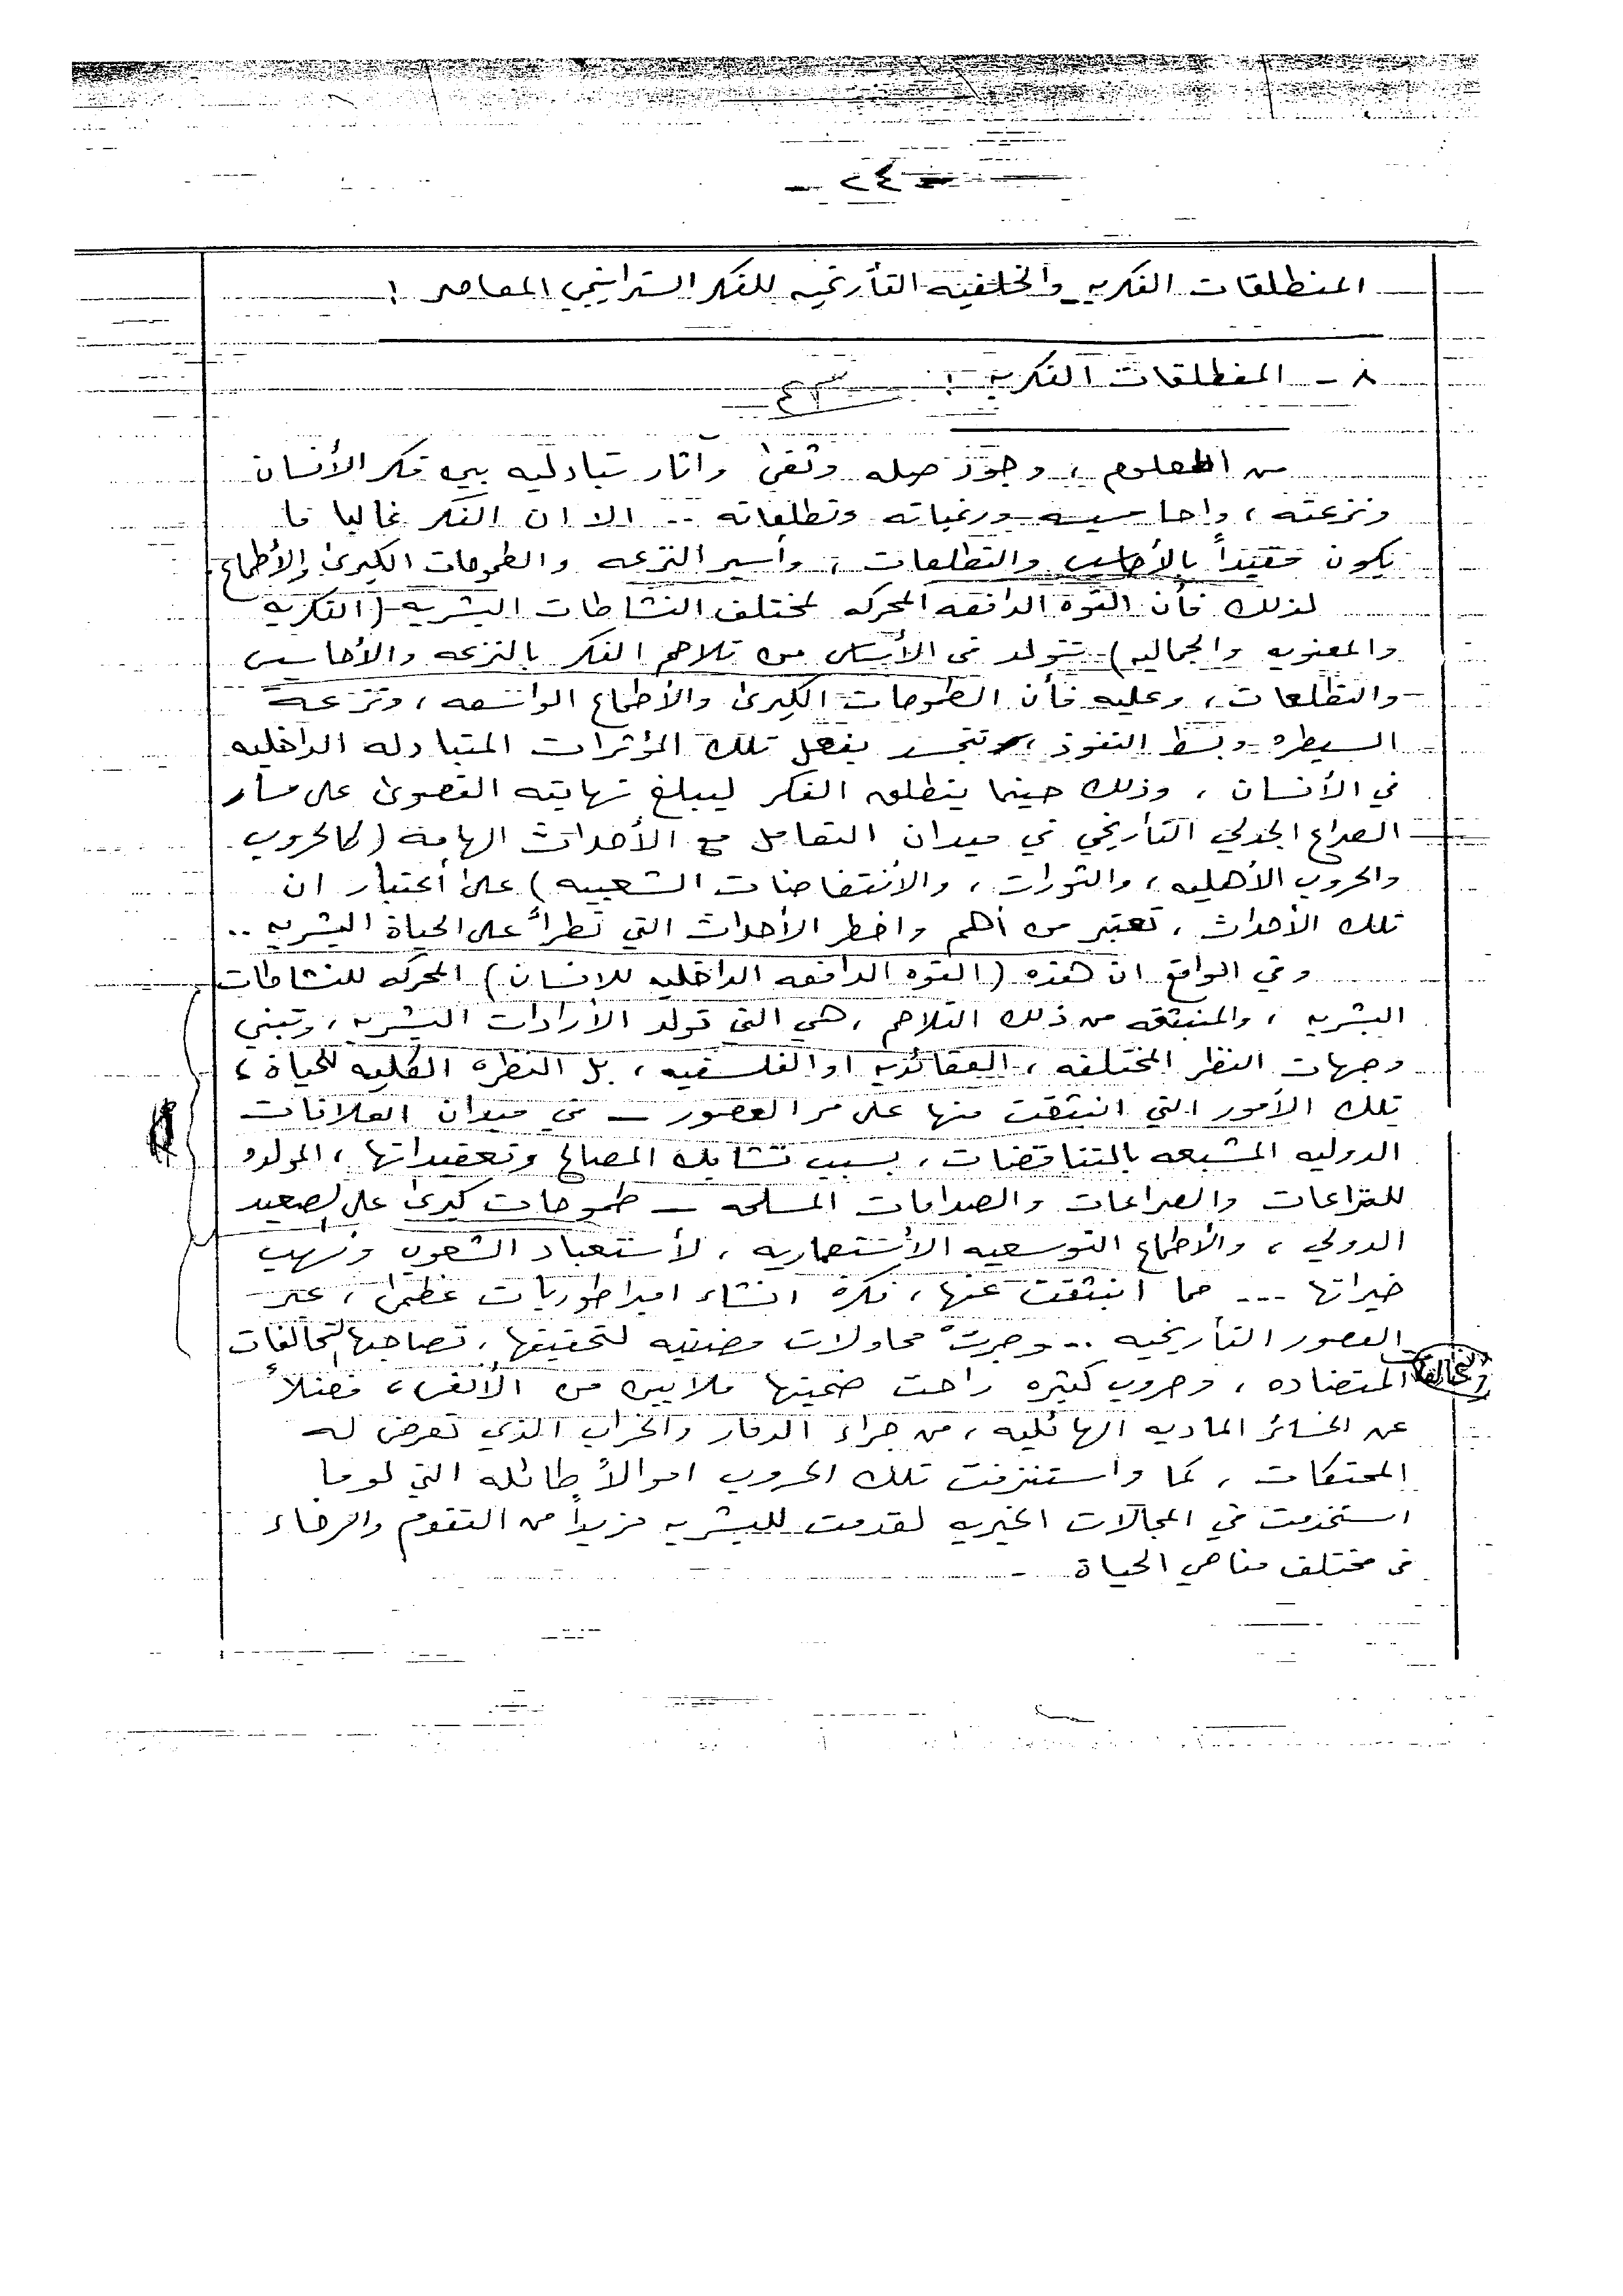 - ٢٤ -
المنطلقات الفكريه والخلفيه التأريخيه للفكر الستراتيجي المعاصر :
٨ - المنطلقات الفكريه :
من المعلوم ، وجود صله وثقى وآثار تبادليه بين فكر الأنسان
ونزعته ، واحاسيسه ورغباته وتطلعاته .. الا ان الفكر غالبا ما
يكون مقيداً بالأحاسيس والتطلعات ، وأسير النزعه والطموحات الكبرى والأطماع .
لذلك فأن القوه الدافعه المحركه لمختلف النشاطات البشريه (الفكريه
والمعنويه والجماليه) تتولد في الأساس من تلاحم الفكر بالنزعه والأحاسيس
والتطلعات ، وعليه فأن الطموحات الكبرى والأطماع الواسعه ، ونزعة
السيطره وبسط النفوذ ، تتجسد بفعل تلك المؤثرات المتبادله الداخليه
في الأنسان ، وذلك حينما ينطلق الفكر ليبلغ نهايته القصوى على مسار
الصراع الجدلي التأريخي في ميدان التعامل مع الأحداث الهامة (كالحروب
والحروب الأهليه ، والثورات ، والأنتفاضات الشعبيه) على أعتبار ان
تلك الأحداث ، تعتبر من أهم واخطر الأحداث التي تطرأ على الحياة البشريه ..
وفي الواقع ان هذه (القوه الدافعه الداخليه للانسان) المحركه للنشاطات
البشريه ، والمنبثقه من ذلك التلاحم ، هي التي تولد الأرادات البشريه ، وتبني
وجهات النظر المختلفه ، العقائديه او الفلسفيه ، بل النظره الكليه للحياة ،
تلك الأمور التي انبثقت منها على مر العصور - في ميدان العلاقات
الدوليه المشبعه بالتناقضات ، بسبب تشابك المصالح وتعقيداتها ، المولده
للنزاعات والصراعات والصدامات المسلحه - طموحات كبرى على الصعيد
الدولي ، والأطماع التوسعيه الأستعماريه ، لأستعباد الشعوب ونهب
خيراتها ... مما انبثقت عنها ، فكرة انشاء امبراطوريات عظمى ، عبر
العصور التأريخيه .. وجرت محاولات مضنيه لتحقيقها ، تصاحبها التحالفات
المتضاده ، وحروب كثيره راحت ضحيتها ملايين من الأنفس ، فضلاً
عن الخسائر الماديه الهائليه ، من جراء الدمار والخراب الذي تعرض له
الممتلكات ، كما وأستنزفت تلك الحروب اموالاً طائله التي لو ما
استخدمت في المجالات الخيريه لقدمت للبشريه مزيداً من التقدم والرخاء
في مختلف مناحي الحياة .